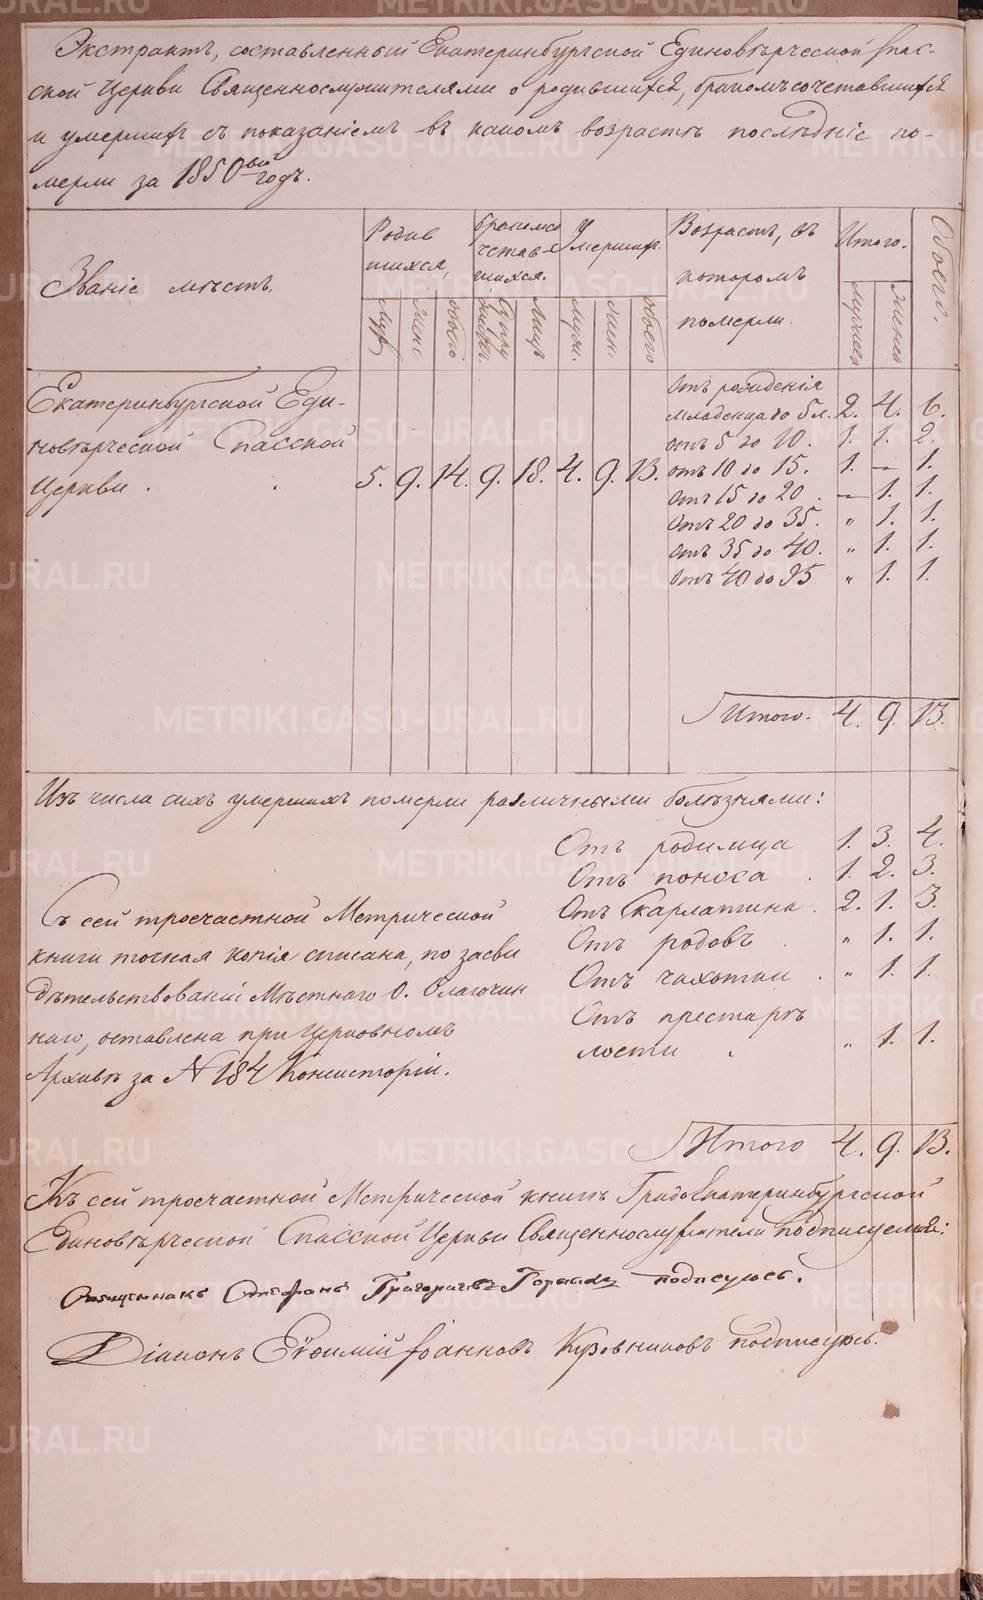 Экстрактъ, составленный Екатеринбургской Единовѣрческой Спас-
ской Церкви Священнослужителями о родившихся, бракомъ сочетавшихся
и умершихъ съ показаніемъ въ какомъ возрастѣ послѣдніе по-
мерли за 1850ый годъ.
Званіе мѣстъ.
Родив
шихся,
бракомсо
четав-
шихся.
Умершихъ.
Возрастъ, въ
которомъ
померли.
Итого.
Обоего.
Муж
Женс
Обоего
Супру
жествъ.
Лицъ
Муж.
Жен.
Обоего
Мужеск
Женск
Екатеринбургской Еди-
новѣрческой Спасской
Церкви . . 5. 9. 14. 9. 18. 4. 9. 13.
Отъ рожденія
младенца до 5 л. 2. 4. 6.
отъ 5 до 10. 1. 1. 2.
отъ 10 до 15. 1. — 1.
отъ 15 до 20. — 1. 1.
отъ 20 до 35. „ 1. 1.
отъ 35 до 40. „ 1. 1.
отъ 40 до 95 „ 1. 1.
Итого. 4. 9. 13.
Изъ числа сихъ умершихъ померли различными болѣзнями:
Отъ родимца 1. 3. 4.
Отъ поноса . 1. 2. 3.
Отъ Скарлатина . 2. 1. 3.
Отъ родовъ . „ 1. 1.
Отъ чахотки . „ 1. 1.
Отъ престарѣ
лости . „ 1. 1.
Съ сей троечастной Метрической
книги точная копія списана, по засви
дѣтельствованіи Мѣстнаго О. Благочин
наго, оставлена при Церковномъ
Архивѣ за № 184 Консисторіи.
Итого 4. 9. 13.
Къ сей троечастной Метрической книгѣ Градо Екатеринбургской
Единовѣрческой Спасской Церкви Священнослужители подписуемся:
Священникъ Стефанъ Григорьевъ подписуюсь.
Діаконъ Евѳимій Іоанновъ Кузовниковъ подписуюсь.
METRIKI.GASO-URAL.RU